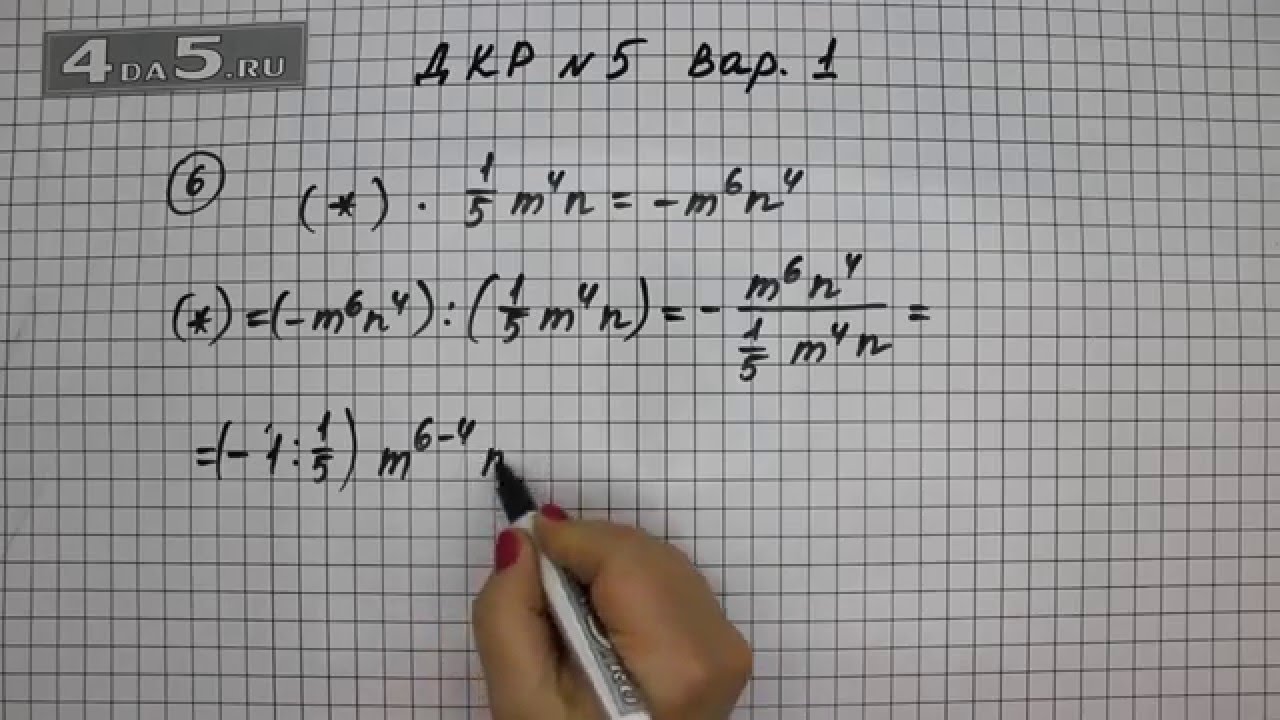 4DA5.RU
ДКР №5 Вар. 1
⑥ (*) · 1/5 m⁴n = -m⁶n⁴
(*) = (-m⁶n⁴) : (1/5 m⁴n) = - m⁶n⁴ / (1/5 m⁴n) =
= (-1 : 1/5) m⁶⁻⁴ n